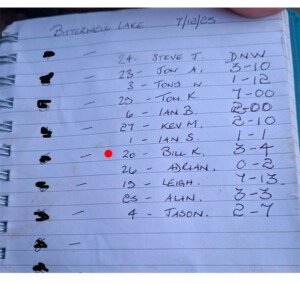 BITTERWELL LAKE 7/12/25
24 - STEVE J. DNW
23 - JON A. 3-10
3 - TONY N 1-12
25 - TOM K. 7-00
6 - IAN B. 2-00
27 - KEV M. 2-10
1 - IAN S. 1-1
20 - BILL K. 3-4
26 - ADRIAN. 0-2
19 - LEIGH. 7-13
ALAN. 3-3
4 - JASON. 2-7